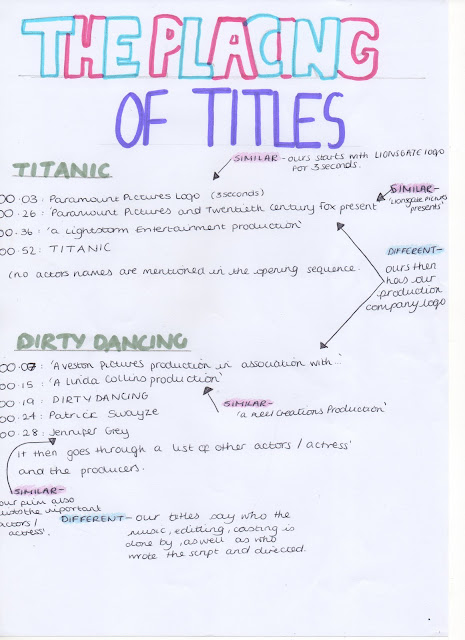 THE PLACING
OF TITLES
SIMILAR - ours starts with LIONSGATE logo
FOR 3 seconds.
TITANIC
00.03: Paramount Pictures Logo (3 seconds)
00.26: 'Paramount Pictures and Twentieth Century Fox present'
SIMILAR-
'Lionsgate Pictures
presents'
00.36: 'a Lightstorm Entertainment production'
00.52: TITANIC
(no actors names are mentioned in the opening sequence.
DIFFERENT-
ours then
has our
production
company logo
DIRTY DANCING
00.07: 'A Vestron Pictures production in association with...'
00.15: 'A Linda Collins production'
00.19: DIRTY DANCING
00.24: Patrick Swayze
00.28: Jennifer Grey
SIMILAR-
'a Reel Creations Production'
it then goes through a list of other actors / actress'
and the producers.
SIMILAR-
our film also
lists the important
actors /
actress'.
DIFFERENT- our titles say who the
music, editing, casting is
done by, as well as who
wrote the script and directed.